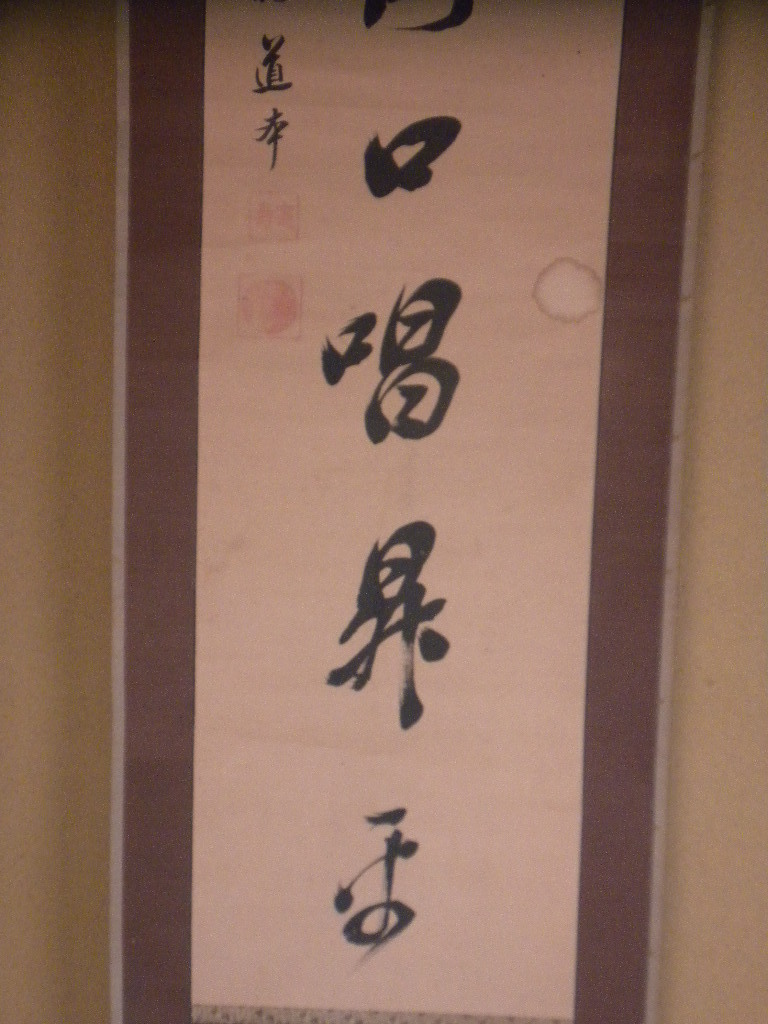 口唱昇平
道本